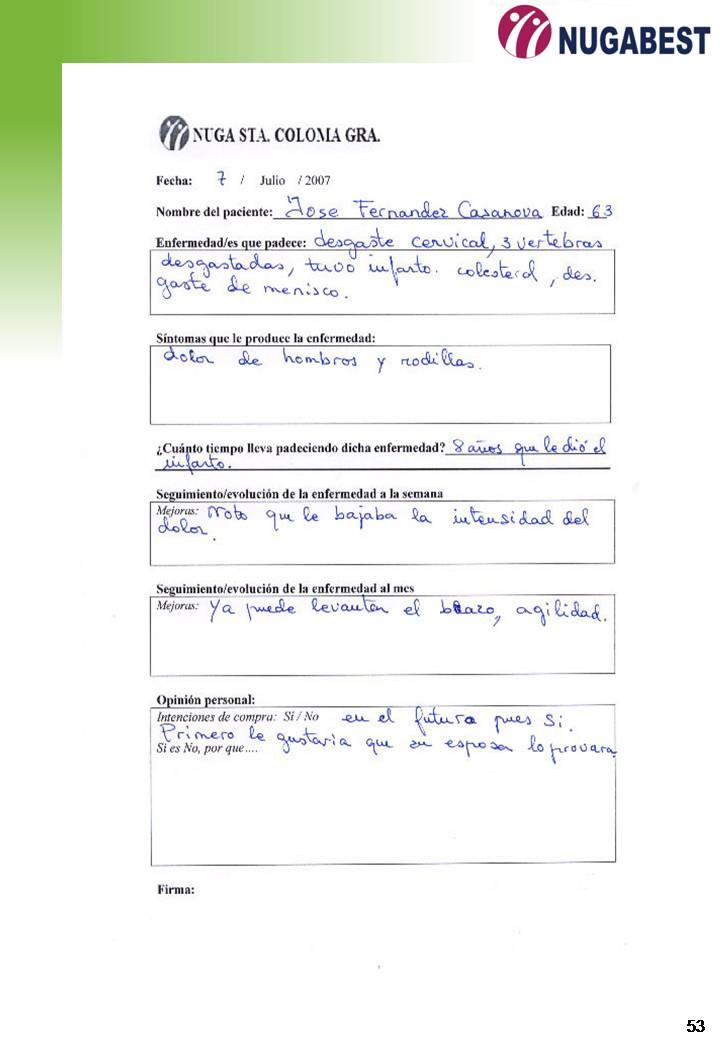 NUGABEST
NUGA STA. COLOMA GRA.
Fecha: 7 / Julio / 2007
Nombre del paciente: Jose Fernandez Casanova Edad: 63
Enfermedad/es que padece: desgaste cervical, 3 vertebras
desgastadas, tuvo infarto. colesterol, des.
gaste de menisco.
Síntomas que le produce la enfermedad:
dolor de hombros y rodillas.
¿Cuánto tiempo lleva padeciendo dicha enfermedad? 8 años que le dió el
infarto.
Seguimiento/evolución de la enfermedad a la semana
Mejoras: Noto que le bajaba la intensidad del
dolor.
Seguimiento/evolución de la enfermedad al mes
Mejoras: Ya puede levantar el brazo, agilidad.
Opinión personal:
Intenciones de compra: Si / No en el futura pues si.
Primero le gustaria que su esposa lo provara
Si es No, por que....
Firma:
53